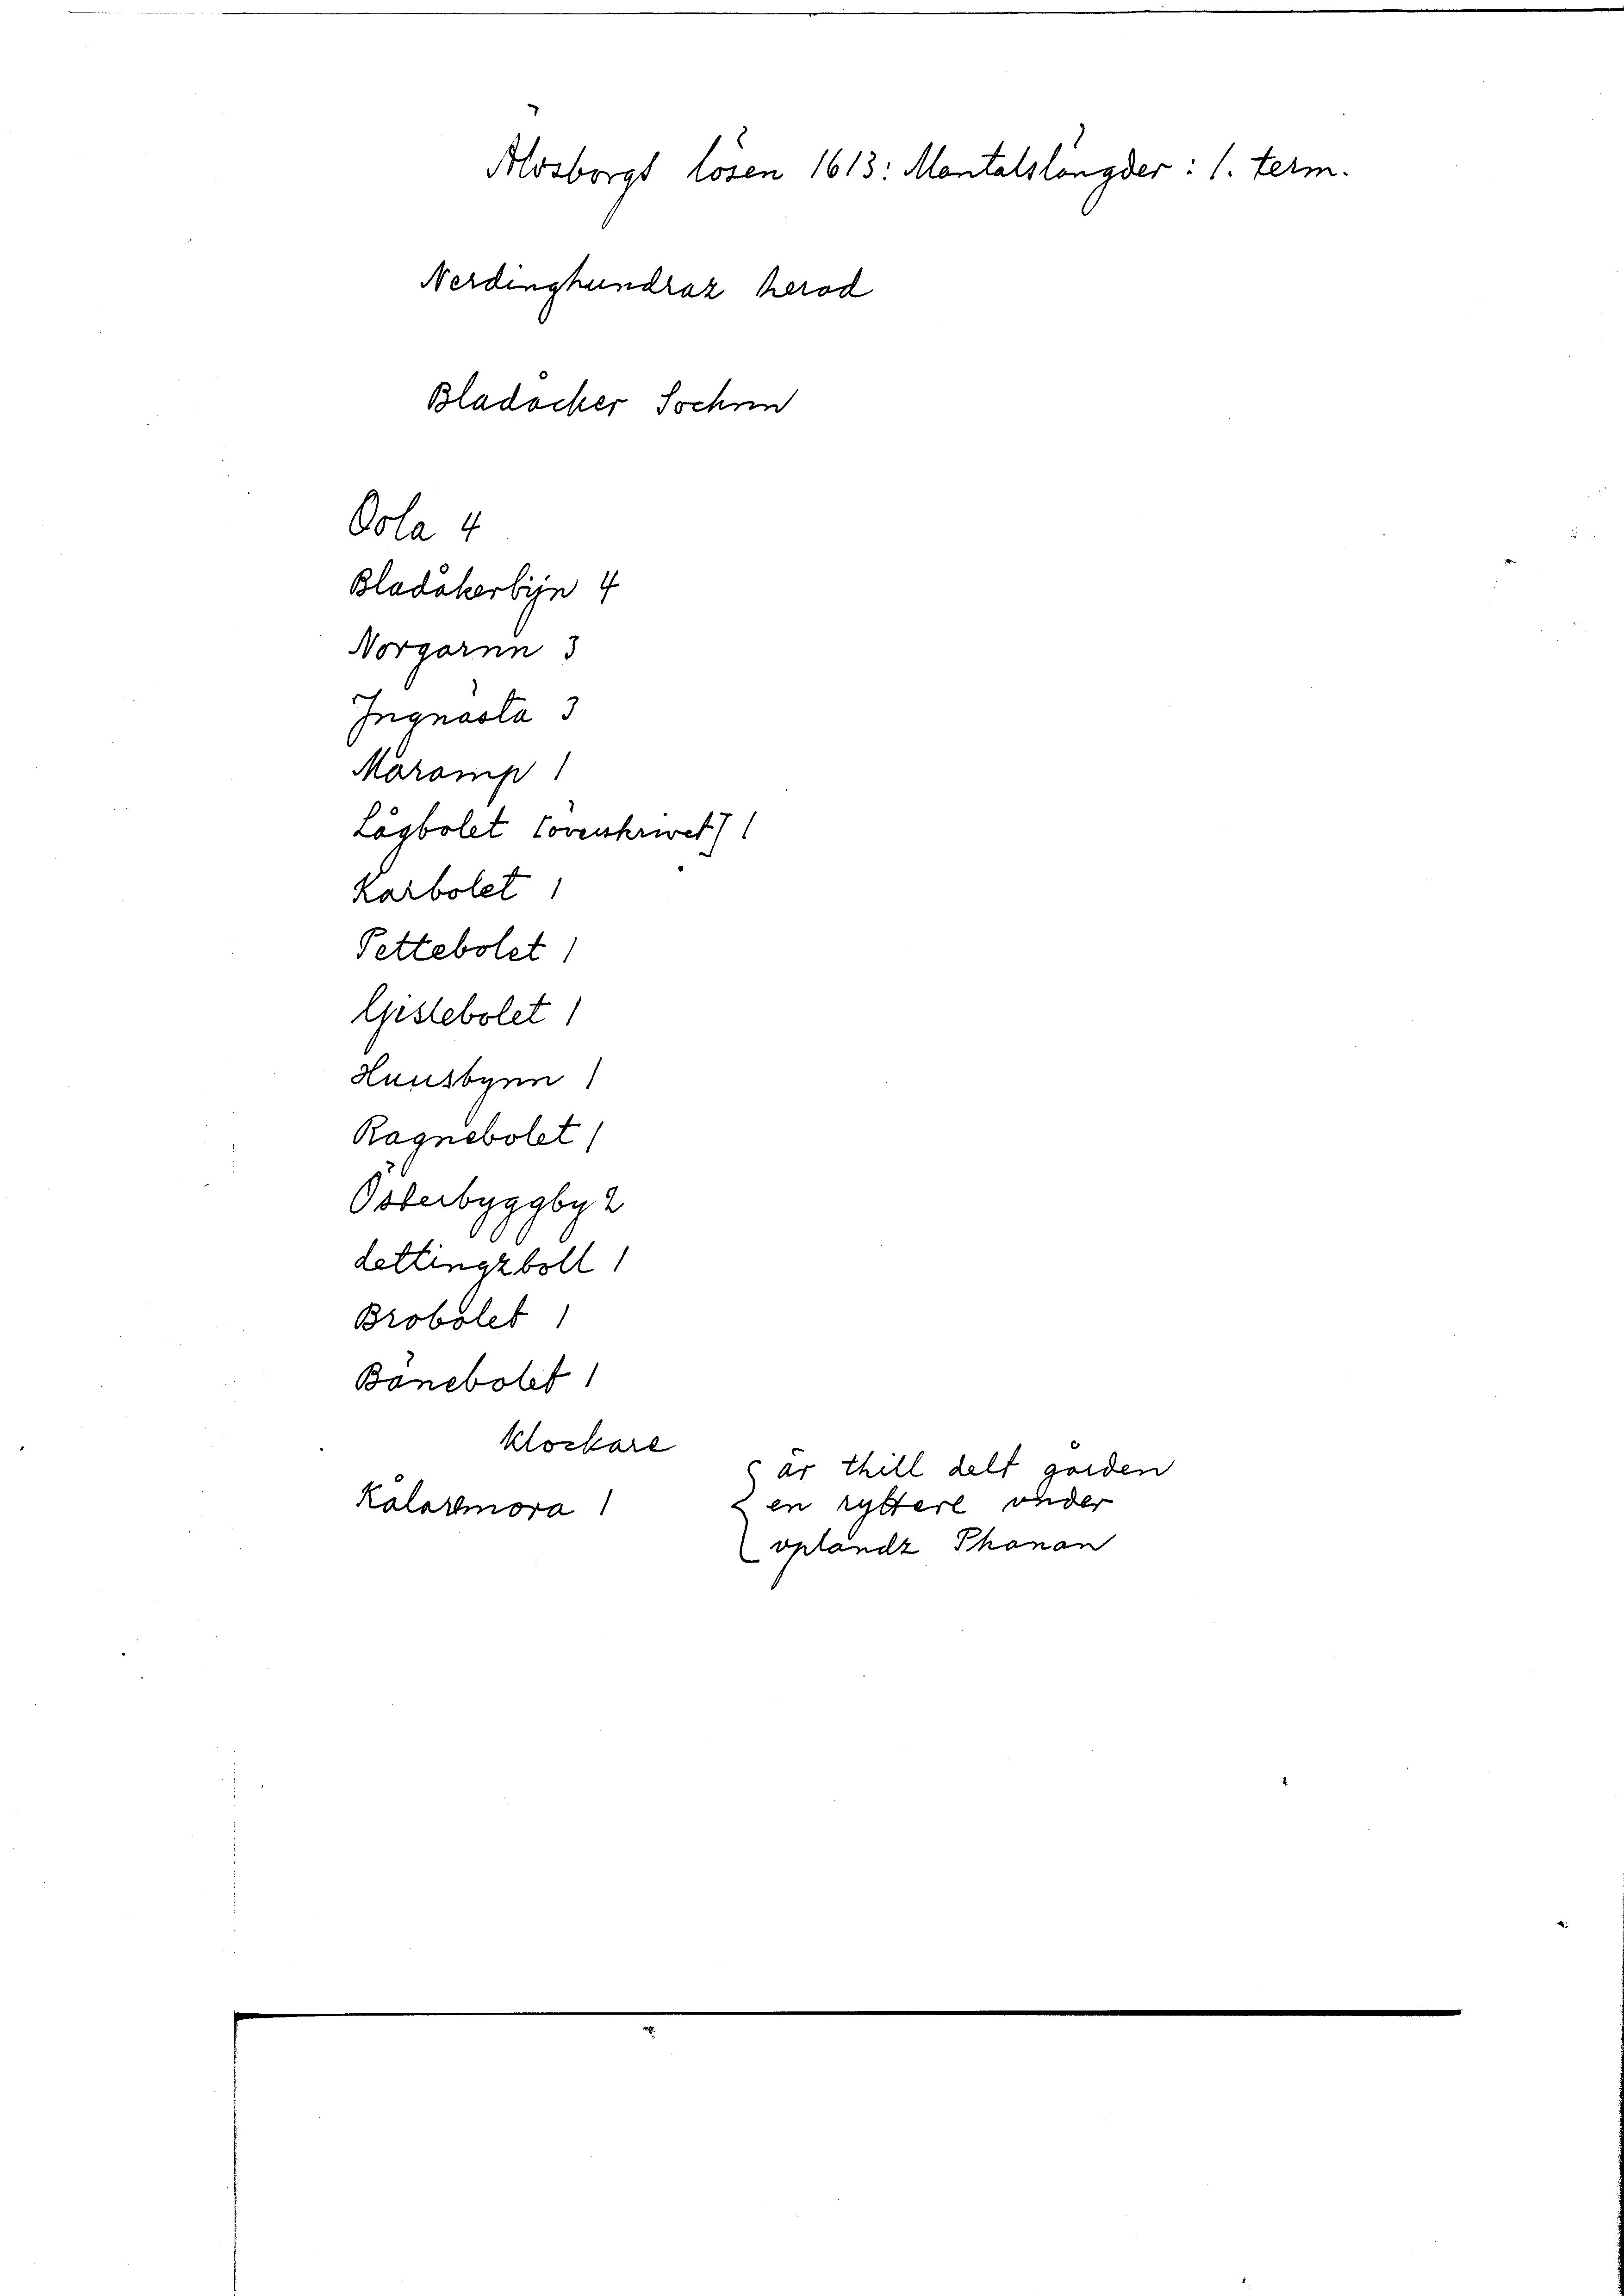 Älvsborgs lösen 1613: Mantalslängder: 1. term.
Nerdinghundraz herad
Bladåcker Sochnn
Oola 4
Bladåkerbijn 4
Norgarnn 3
Ingnästa 3
Maramp 1
Lågbolet [överskrivet] 1
Karbolet 1
Pettebolet 1
Gislebolet 1
Huusbynn 1
Ragnebolet 1
Österbyggby 2
dettingzboll 1
Brobolet 1
Bänebolet 1
klockare
är thill delt gården
Kålaremora 1
en ryttere vnder
vplandz Phanan